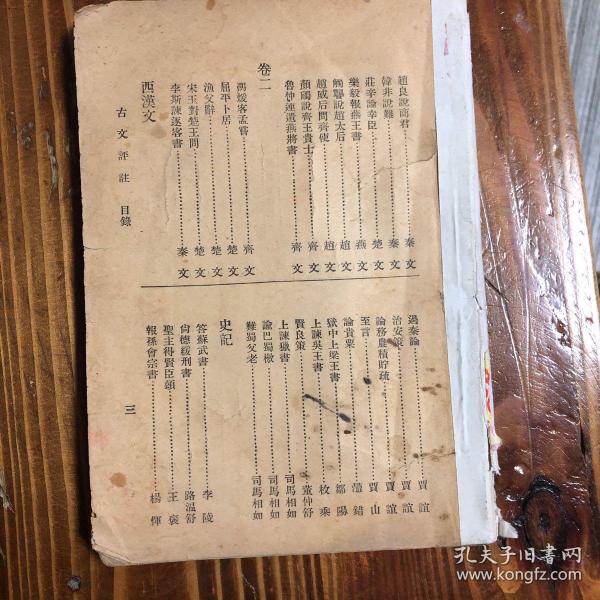 趙良說商君……秦文
韓非說難……秦文
莊辛論幸臣……楚文
樂毅報燕王書……燕文
觸讋說趙太后……趙文
趙威后問齊使……趙文
顏斶說齊王貴士……齊文
魯仲連遺燕將書……齊文
卷二
馮煖客孟嘗……齊文
屈平卜居……楚文
漁父辭……楚文
宋玉對楚王問……楚文
李斯諫逐客書……秦文
西漢文
過秦論……賈誼
治安策……賈誼
論務農積貯疏……賈誼
至言……賈山
論貴粟……鼂錯
獄中上梁王書……鄒陽
上諫吳王書……枚乘
賢良策……董仲舒
上諫獵書……司馬相如
諭巴蜀檄……司馬相如
難蜀父老……司馬相如
史記
答蘇武書……李陵
尚德緩刑書……路溫舒
聖主得賢臣頌……王褒
報孫會宗書……楊惲
古文評註 目錄
三
孔夫子旧书网
www.kongfz.com